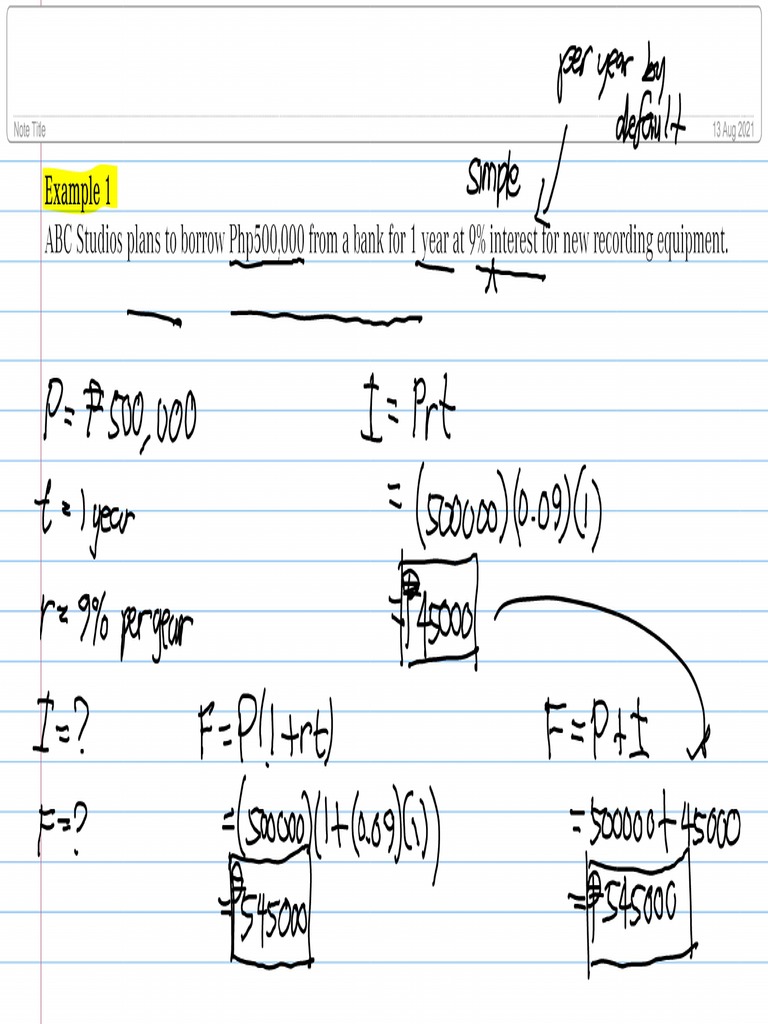 per year by
default
Note Title
13 Aug 2021
simple
Example 1
ABC Studios plans to borrow Php500,000 from a bank for 1 year at 9% interest for new recording equipment.
P = ₱500,000
I = Prt
t = 1 year
= (500000)(0.09)(1)
r = 9% per year
= ₱45000
I = ?
F = P(1+rt)
F = P + I
F = ?
= (500000)(1+(0.09)(1))
= 500000 + 45000
= ₱545000
= ₱545000